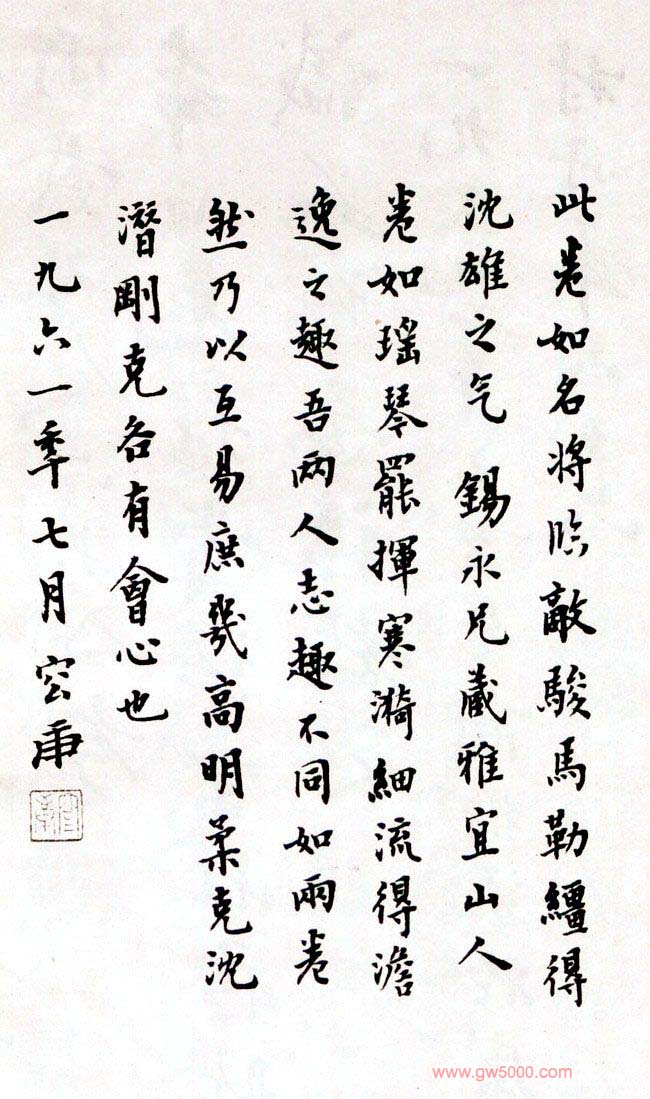 此卷如名将临敵駿馬勒繮得
沈雄之气 錫永兄藏雅宜山人
卷如瑶琴罷揮寒漪細流得澹
逸之趣吾两人志趣不同如兩卷
然乃以互易庶幾高明柔克沈
潛剛克各有會心也
一九六一年七月容庚
www.gw5000.com